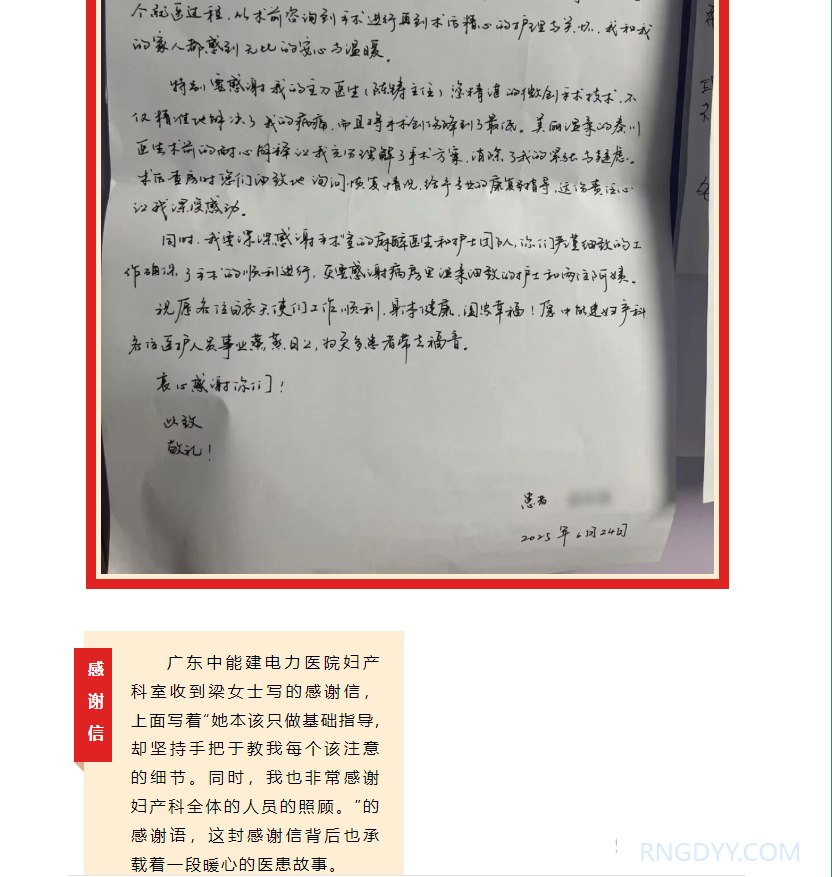 个就医过程，从术前咨询到手术进行再到术后精心的护理与关怀，我和我
的家人都感到无比的安心与温暖。
特别要感谢我的主刀医生（陈铸主任）凭精湛的微创手术技术，不
仅精准地解决了我的病痛，而且将手术创伤降到了最低。美丽温柔的秦川
医生术前的耐心解释让我充分理解了手术方案，消除了我的紧张与疑虑。
术后查房时您们细致地询问恢复情况，给予专业的康复指导，这份责任心
让我深受感动。
同时，我要深深感谢手术室的麻醉医生和护士团队，你们严谨细致的工
作确保了手术的顺利进行，更要感谢病房里温柔细致的护士和两位阿姨。
祝愿各位白衣天使们工作顺利，身体健康，阖家幸福！愿中能建妇产科
各位医护人员事业蒸蒸日上，为更多患者带去福音。
衷心感谢你们！
此致
敬礼！
患者
2025年6月24日
感谢信
广东中能建电力医院妇产
科室收到梁女士写的感谢信，
上面写着“她本该只做基础指导，
却坚持手把于教我每个该注意
的细节。同时，我也非常感谢
妇产科全体的人员的照顾。”的
感谢语，这封感谢信背后也承
载着一段暖心的医患故事。
RNGDYY.COM